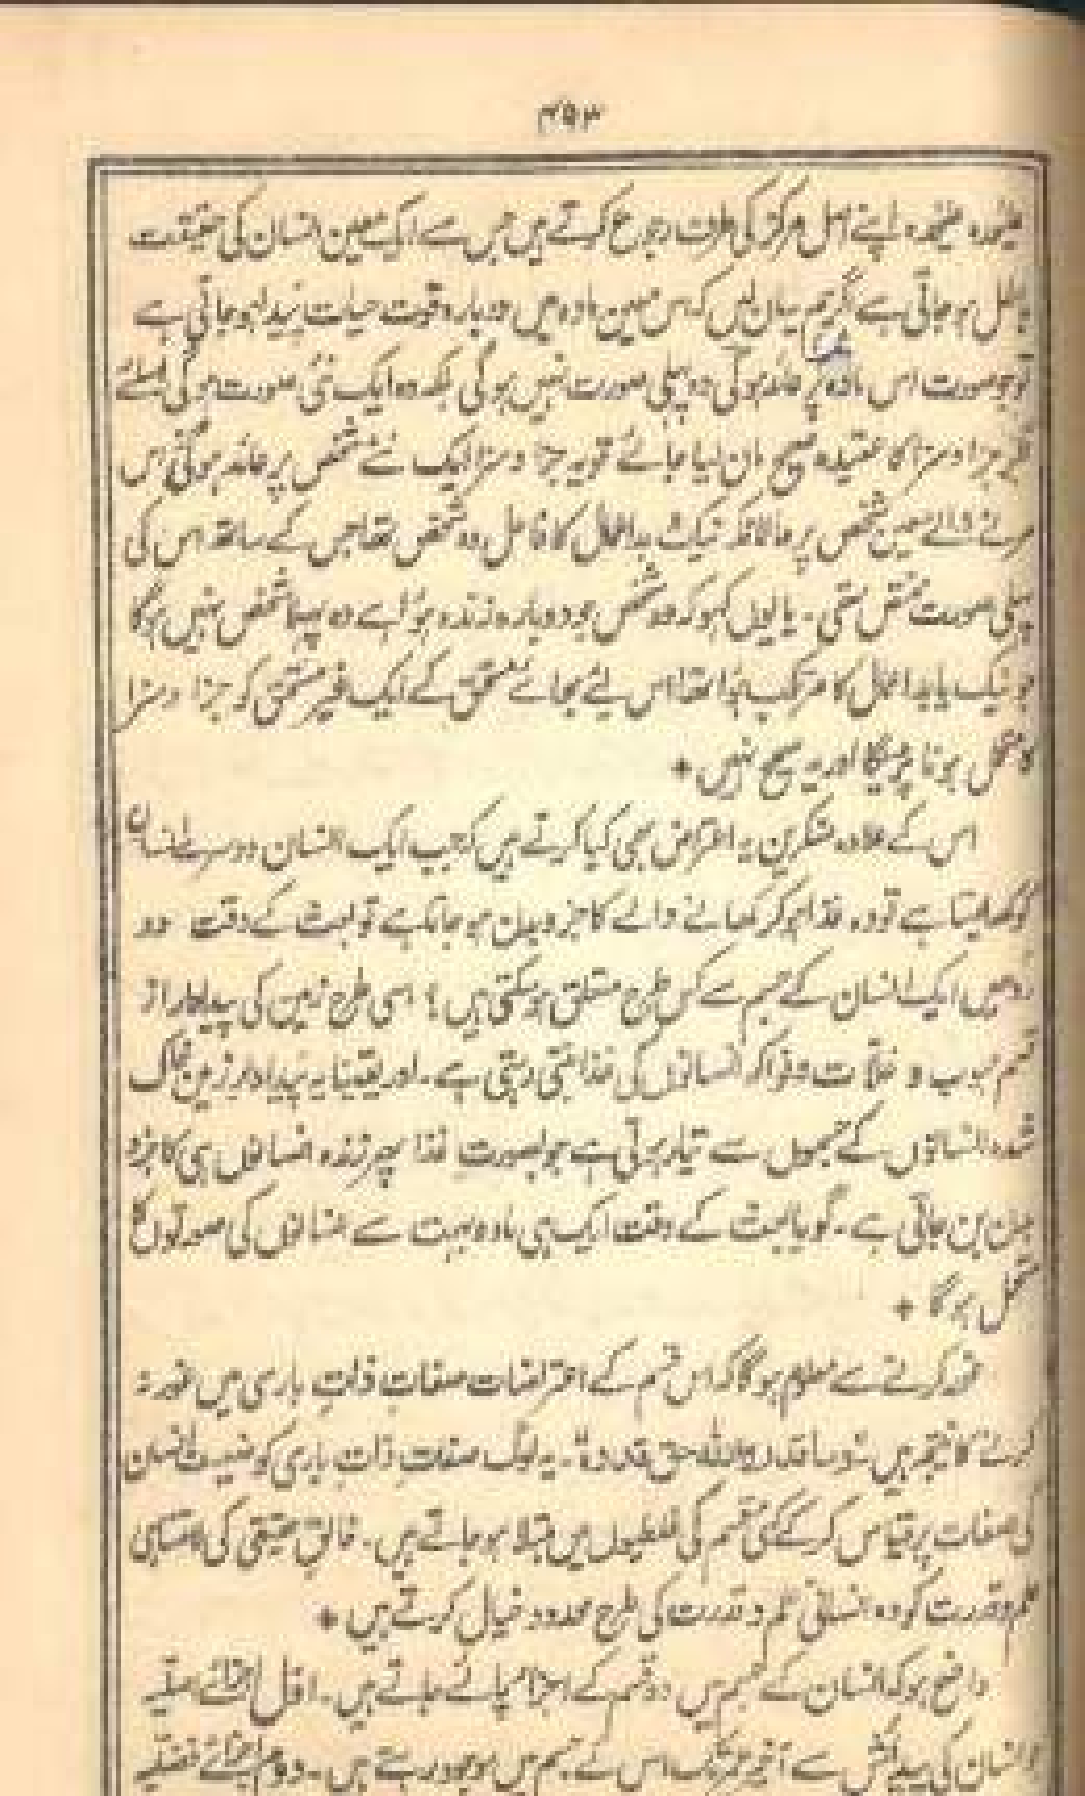 ۴۵۳
علیحدہ علیحدہ اپنے اصل مرکز کی طرف رجوع کرتے ہیں جس سے ایک معین انسان کی حقیقت
باطل ہو جاتی ہے اگر ہم یہ مان لیں کہ اس معین مادہ میں دوبارہ قوت حیات پیدا ہو جاتی ہے
تو جو صورت اس مادہ پر عائد ہوگی وہ پہلی صورت نہیں ہوگی بلکہ وہ ایک نئی صورت ہوگی اسلئے
اگر جزا و سزا کا عقیدہ صحیح مان لیا جائے تو یہ جزا و سزا ایک نئے شخص پر عائد ہوگی نہ اس
مرنے والے معین شخص پر حالانکہ نیک بد اعمال کا فاعل وہ شخص تھا جس کے ساتھ اس کی
پہلی صورت مختص تھی۔ یا یوں کہو کہ وہ شخص جو دوبارہ زندہ ہوا ہے وہ پہلا شخص نہیں ہوگا
جو نیک یا بد اعمال کا مرتکب ہوا تھا اس لئے بجائے مستحق کے ایک غیر مستحق کو جزا و سزا
کا متحمل ہونا پڑیگا اور یہ صحیح نہیں +
اس کے علاوہ منکرین یہ اعتراض بھی کیا کرتے ہیں کہ جب ایک انسان دوسرے انسان
کو کھا لیتا ہے تو وہ غذا ہو کر کھانے والے کا جزو بدن ہو جاتا ہے تو بعث کے وقت دو
روحیں ایک انسان کے جسم سے کس طرح متعلق ہو سکتی ہیں؟ اسی طرح زمین کی پیداوار از
قسم حبوب و غلّات و فواکہ انسانوں کی غذا بنتی رہتی ہے۔ اور یقیناً یہ پیداوار زمین خاک
شدہ انسانوں کے جسموں سے تیار ہوتی ہے جو بصورت غذا پھر زندہ انسانوں ہی کا جزو
بدن بن جاتی ہے۔ گویا بعث کے وقت ایک ہی مادہ بہت سے انسانوں کی صورتوں کا
متحمل ہوگا +
غور کرنے سے معلوم ہوگا کہ اس قسم کے اعتراضات صفات ذات باری میں غور نہ
کرنے کا نتیجہ ہیں وما قدروا الله حق قدره۔ یہ لوگ صفات ذات باری کو ضعیف انسان
کی صفات پر قیاس کر کے کئی قسم کی غلطیوں میں مبتلا ہو جاتے ہیں۔ خالق حقیقی کی لامتناہی
علم و قدرت کو وہ انسانی علم و قدرت کی طرح محدود خیال کرتے ہیں +
واضح ہو کہ انسان کے جسم میں دو قسم کے اجزا پائے جاتے ہیں۔ اول اجزائے اصلیہ
جو انسان کی پیدائش سے آخیر عمر تک اس کے جسم میں موجود رہتے ہیں۔ دوم اجزائے فضلیہ